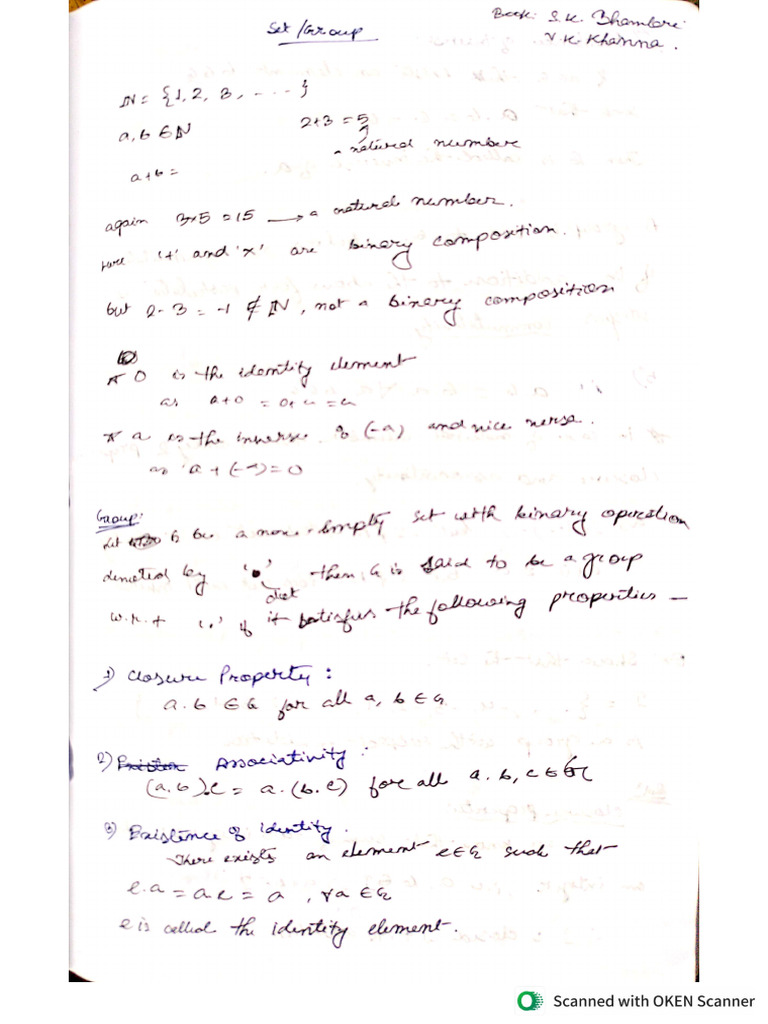 Set/Group
Book: S.K. Bhambari
V.K. Khanna.
N = {1, 2, 3, ....}
a, b ∈ N 2+3 = 5
a natural number
a+b =
again 3×5 = 15 → a natural number.
here '+' and '×' are binary composition.
but 2-3 = -1 ∉ N, not a binary composition
* 0 is the identity element
as a+0 = 0+a = a
* a is the inverse of (-a) and vice versa.
as a + (-a) = 0
Group:
Let G be a non-empty set with binary operation
denoted by '•' then G is said to be a group
dot
w.r.t '.' if it satisfies the following properties —
1) Closure Property:
a.b ∈ G for all a, b ∈ G
2) Associativity:
(a.b).c = a.(b.c) for all a.b, c ∈ G
3) Existence of Identity.
There exists an element e ∈ G such that
e.a = a.e = a, ∀a ∈ G
e is called the identity element.
Scanned with OKEN Scanner